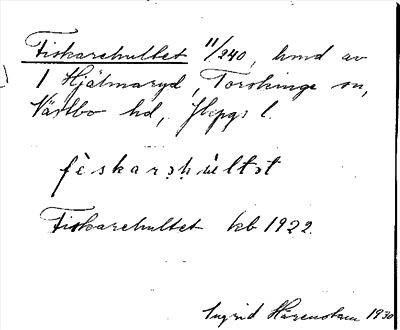 Fiskarehultet 11/240, hmd av
1 Hjälmaryd, Torskinge sn,
Västbo hd, Jkpgs l.
fèskarshùltət
Fiskarehultet kb 1922.
Ingrid Härenstam 1930